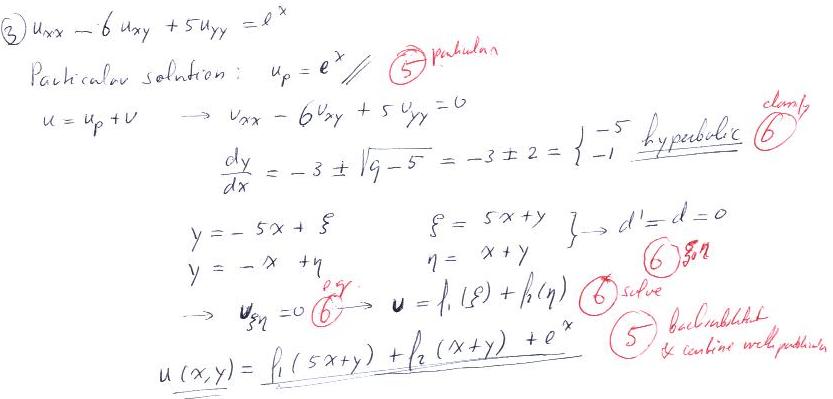 ③ u_xx − 6 u_xy + 5 u_yy = e^x
Particular solution: u_p = e^x // ⑤ particular
u = u_p + v → v_xx − 6 v_xy + 5 v_yy = 0
dy/dx = −3 ± √(9−5) = −3 ± 2 = { −5 −1 hyperbolic ⑥ classify
y = −5x + ξ ξ = 5x+y } → d' = d = 0
y = −x + η η = x+y ⑥ ξ,η
→ v_ξη = 0 ⑥ eq. → v = f₁(ξ) + f₂(η) ⑥ solve
u(x,y) = f₁(5x+y) + f₂(x+y) + e^x ⑤ backsubstitut
& combine with particular